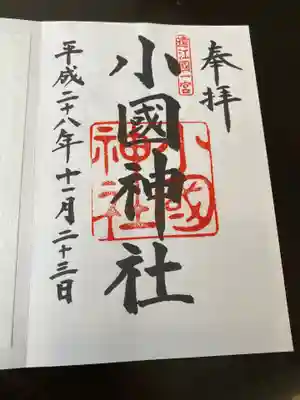 奉拝
遠江國一宮
小國神社
小國神社
平成二十八年十一月二十三日